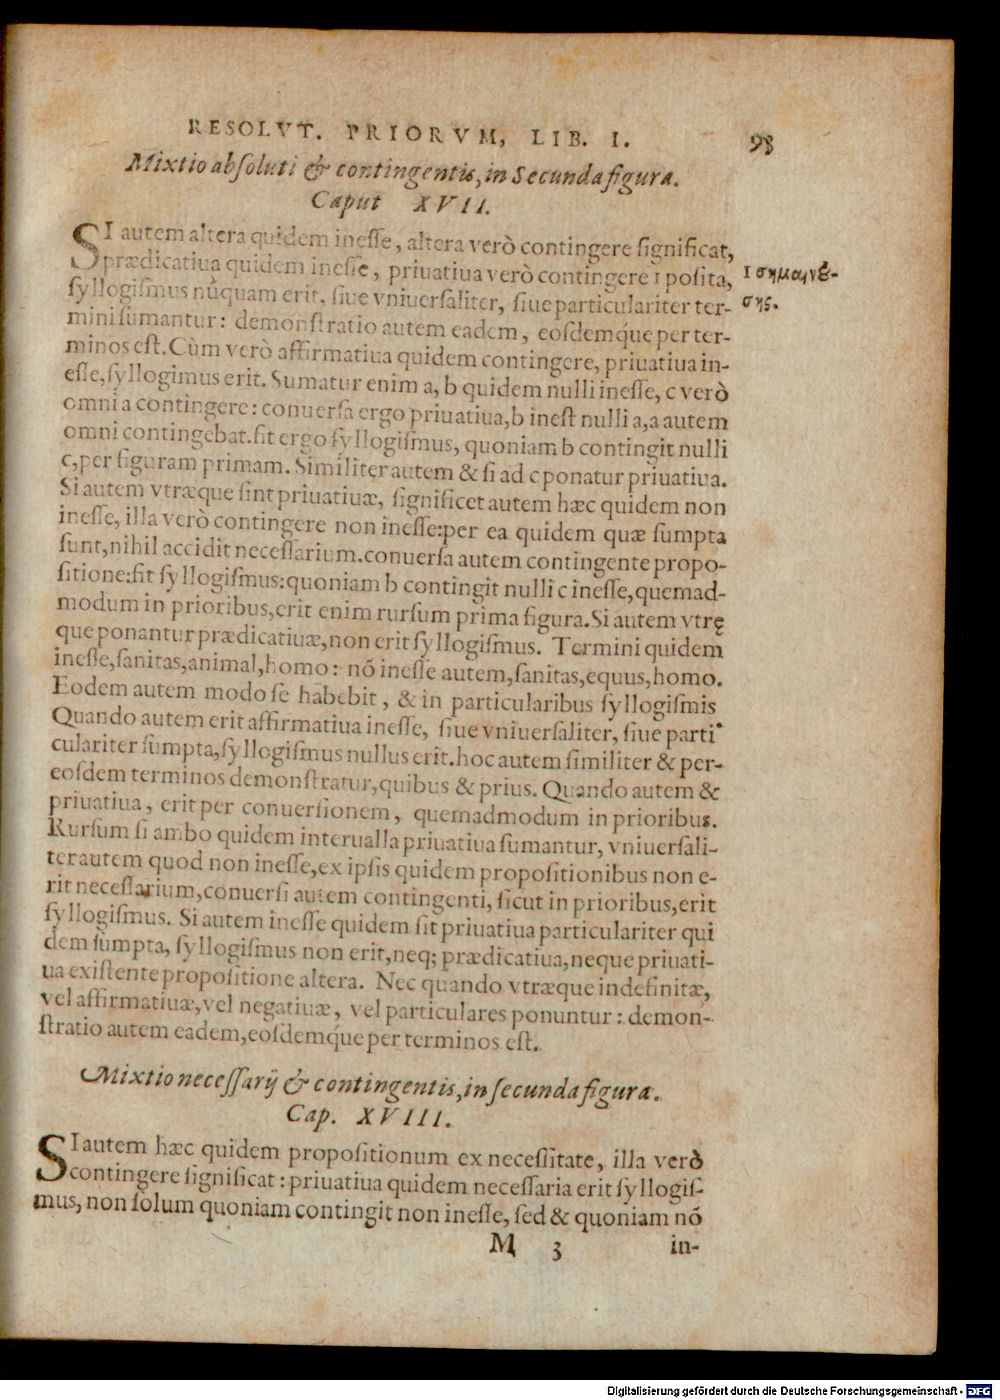 RESOLVT. PRIORVM, LIB. I. 93
Mixtio absoluti & contingentis, in Secunda figura.
Caput XVII.
SI autem altera quidem inesse, altera verò contingere significat,
prædicatiua quidem inesse, priuatiua verò contingere 1 posita,
1 σημαινέ-
σης.
syllogismus nũquam erit, siue vniuersaliter, siue particulariter ter-
mini sumantur: demonstratio autem eadem, eosdemq́ue per ter-
minos est. Cùm verò affirmatiua quidem contingere, priuatiua in-
esse, syllogimus erit. Sumatur enim a, b quidem nulli inesse, c verò
omni a contingere: conuersa ergo priuatiua, b inest nulli a, a autem
omni contingebat. fit ergo syllogismus, quoniam b contingit nulli
c, per figuram primam. Similiter autem & si ad c ponatur priuatiua.
Si autem vtræque sint priuatiuæ, significet autem hæc quidem non
inesse, illa verò contingere non inesse: per ea quidem quæ sumpta
sunt, nihil accidit necessarium. conuersa autem contingente propo-
sitione: fit syllogismus: quoniam b contingit nulli c inesse, quemad-
modum in prioribus, erit enim rursum prima figura. Si autem vtrę
que ponantur prædicatiuæ, non erit syllogismus. Termini quidem
inesse, sanitas, animal, homo: nõ inesse autem, sanitas, equus, homo.
Eodem autem modo se habebit, & in particularibus syllogismis
Quando autem erit affirmatiua inesse, siue vniuersaliter, siue parti
culariter sumpta, syllogismus nullus erit. hoc autem similiter & per-
eosdem terminos demonstratur, quibus & prius. Quando autem &
priuatiua, erit per conuersionem, quemadmodum in prioribus.
Rursum si ambo quidem interualla priuatiua sumantur, vniuersali-
ter autem quod non inesse, ex ipsis quidem propositionibus non e-
rit necessarium, conuersi autem contingenti, sicut in prioribus, erit
syllogismus. Si autem inesse quidem sit priuatiua particulariter qui
dem sumpta, syllogismus non erit, neq; prædicatiua, neque priuati-
ua existente propositione altera. Nec quando vtræque indefinitæ,
vel affirmatiuæ, vel negatiuæ, vel particulares ponuntur: demon-
stratio autem eadem, eosdemq́ue per terminos est.
Mixtio necessarij & contingentis, in secunda figura.
Cap. XVIII.
SI autem hæc quidem propositionum ex necessitate, illa verò
contingere significat: priuatiua quidem necessaria erit syllogis-
mus, non solum quoniam contingit non inesse, sed & quoniam nõ
M 3 in-
Digitalisierung gefördert durch die Deutsche Forschungsgemeinschaft - DFG